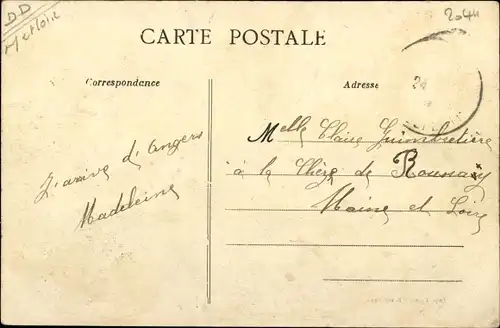 DD
M et Loire
2044
CARTE POSTALE
Correspondance
Adresse
J'arrive d'Angers
Madeleine
Melle Claire Guimbretière
à la Chèze de Roussay
Maine et Loire